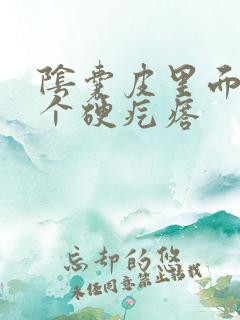 阴囊皮里面
个硬疙瘩
忘却的悠
未经同意禁止转载